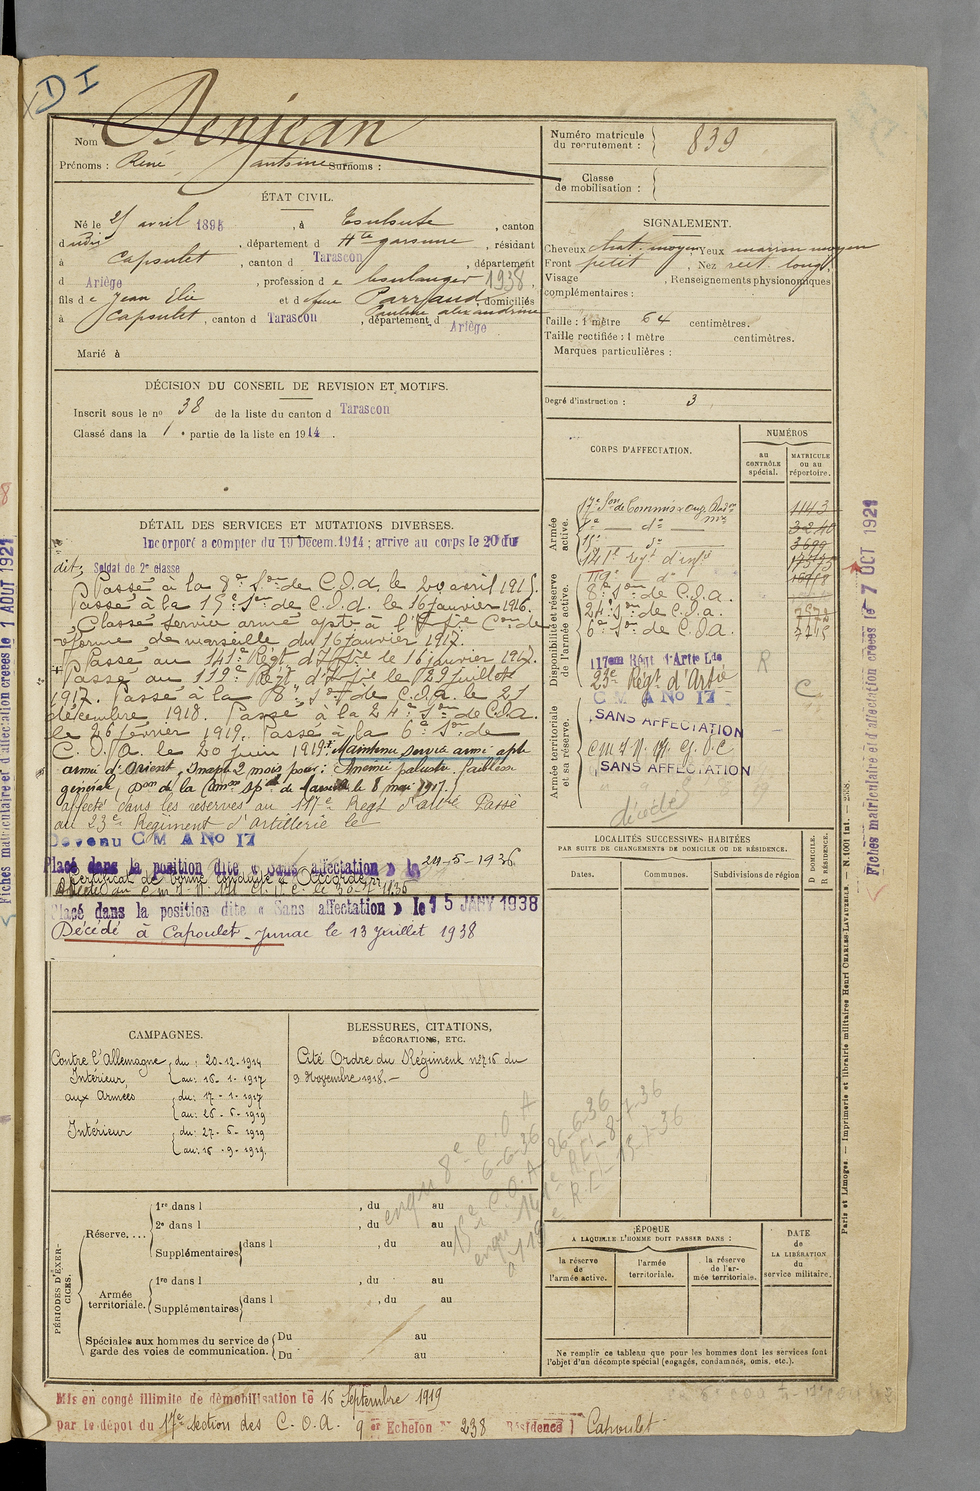 D I
Nom Denjean
Prénoms : René, Antoine Surnoms :
ÉTAT CIVIL.
Né le 21 avril 1895, à Toulouse, canton
dudit, département d Hte garonne, résidant
à Capoulet, canton d Tarascon, département
d Ariège, profession de boulanger 1938.
fils de Jean Elie et de feue Parraud domiciliés
Pauline alexandrine
à Capoulet, canton d Tarascon, département d Ariège
Marié à
DÉCISION DU CONSEIL DE REVISION ET MOTIFS.
Inscrit sous le no 38 de la liste du canton d Tarascon
Classé dans la 1e partie de la liste en 1914.
DÉTAIL DES SERVICES ET MUTATIONS DIVERSES.
Incorporé a compter du 19 Decem. 1914 ; arrive au corps le 20 du
dit; Soldat de 2e classe
Passé à la 8e Son de C.O.A. le 20 avril 1915.
Passé à la 15e Son de C.O.A. le 16 Janvier 1916.
Classé Service armé apte à l'Inf ie Con de
réforme de marseille du 16 Janvier 1917.
Passé au 141e Régt d'Inf ie le 16 janvier 1917.
Passé au 119e Régt d'Inf ie le 29 Juillet
1917. Passé à la 8e Son de C.O.A. le 21
décembre 1918. Passé à la 24e Son de C.O.A.
le 26 février 1919. Passé à la 6e Son de
C.O.A. le 20 Juin 1919. Maintenu Service armé apte
armée d'Orient, Inapte 2 mois pour : Anémie palustre, faiblesse
générale, Don de la Comon Sple de Marseille le 8 mai 1917.
affecté dans les réserves au 117e Régt d'artie Passé
au 23e Régiment d'Artillerie le
Devenu C M A No 17
Placé dans la position dite « Sans affectation » le 24-5-1936
Certificat de bonne conduite « Accordé »
Placé dans la position dite « Sans affectation » le 15 JANV 1938
Décédé à Capoulet-Junac le 13 Juillet 1938
CAMPAGNES.
Contre l'Allemagne du : 20-12-1914
Intérieur, au : 16-1-1917
aux Armées du : 17-1-1917
au : 26-6-1919
Intérieur du : 27-6-1919
au : 16-9-1919.
BLESSURES, CITATIONS,
DÉCORATIONS, ETC.
Cité Ordre du Régiment no 716 du
9 Novembre 1918.-
PÉRIODES D'EXERCICES.
Réserve....
1re dans l , du au
2e dans l , du au
Supplémentaires dans l , du au
Armée
territoriale.
1re dans l , du au
Supplémentaires dans l , du au
Spéciales aux hommes du service de
garde des voies de communication.
Du au
Du au
Mis en congé illimité de démobilisation le 16 Septembre 1919
par le dépot du 17e section des C.O.A. 9 er Echelon N 238 Résidence Capoulet
Numéro matricule
du recrutement : 839
Classe
de mobilisation :
SIGNALEMENT.
Cheveux chat. moyen Yeux marron moyen
Front petit, Nez rect. long
Visage , Renseignements physionomiques
complémentaires :
Taille : 1 mètre 64 centimètres.
Taille rectifiée : 1 mètre centimètres.
Marques particulières :
Degré d'instruction : 3
CORPS D'AFFECTATION.
NUMÉROS
au
CONTRÔLE
spécial.
MATRICULE
ou au
répertoire.
Armée
active.
Disponibilité et réserve
de l'armée active.
Armée territoriale
et sa réserve.
17e Son de Commis & ouv. d'adm 1143
mre
8e do 3240
15e do 3699
141e reg t d'inf ie
119e do
8e Son de C.O.A.
24e Son de C.O.A.
6e Son de C.O.A.
117em Régt d'Artie Lde
23e Régt d'Artie
R
C M A No 17
SANS AFFECTATION
SANS AFFECTATION
décédé
LOCALITÉS SUCCESSIVES HABITÉES
PAR SUITE DE CHANGEMENTS DE DOMICILE OU DE RÉSIDENCE.
D DOMICILE.
R RÉSIDENCE.
Dates.
Communes.
Subdivisions de région
ÉPOQUE
A LAQUELLE L'HOMME DOIT PASSER DANS :
la réserve
de
l'armée active.
l'armée
territoriale.
la réserve
de l'ar-
mée territoriale.
DATE
de
LA LIBÉRATION
du
service militaire.
Ne remplir ce tableau que pour les hommes dont les services font
l'objet d'un décompte spécial (engagés, condamnés, omis, etc.).
Paris et Limoges. — Imprimerie et librairie militaires Henri CHARLES-LAVAUZELLE. — N. 1001 Int. — 238.
Fiches matriculaire et d'affectation créées le 7 OCT 1921
Fiches matriculaire et d'affectation créées le 1 AOUT 1921